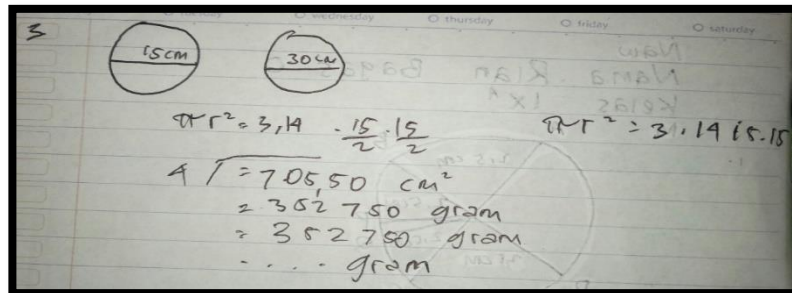 wednesday thursday friday saturday
3
15 cm 30 cm
πr² = 3,14 · 15/2 · 15/2 πr² = 3,14 15.15
4 = 705,50 cm²
= 352 750 gram
= 352 750 gram
.... gram